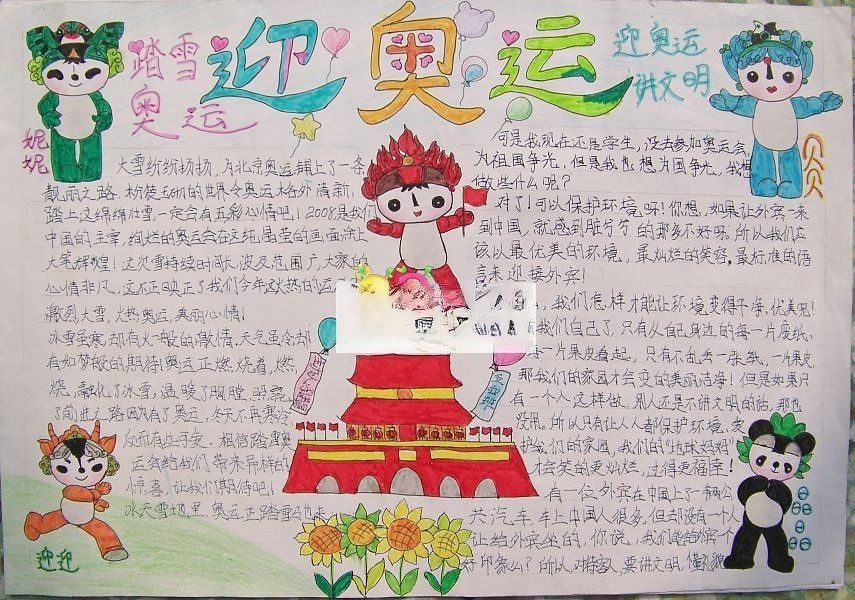 踏雪
奥运
迎奥运
迎奥运
讲文明
妮妮
贝贝
大雪纷纷扬扬，为北京奥运铺上了一条
靓丽之路。粉
的世界令奥运格外清新，
踏上这绵绵壮雪一定会有五彩心情吧！2008是我们
中国的主宰，绚烂的奥运会在这纯
的画面涂上
大笔辉煌！这次雪持续时间长，波及范围广，大家的
心情非凡，这不正映正了我们今年这火热的
激烈大雪，火热奥运，美丽心情！
冰雪虽寒，却有火一般的激情，天气虽冷却
有如梦般的期待！奥运正燃烧着，燃
烧，融化了冰雪，温暖了胸膛，照亮
了前进之路因为有了奥运，冬天不再寒冷，
反而有些
相信踏雪奥
运会给我们带来异样的
惊喜，让我们期待吧！
冰天雪地里，奥运正踏雪
迎迎
何是我现在还是学生，没去参加奥运会，
为祖国争光，但是我也想为国争光，我想
做些什么呢？
对了！可以保护环境呀！你想，如果让外宾一来
到中国，就感到脏兮兮的那多不好呀。所以我们应
该以最优美的环境，最灿烂的笑容，最标准的语
言来迎接外宾！
我们怎样才能让环境变得干净，优美呢！
我们自己了，只有从自己身边的每一片废纸，
每一片果皮看起，只有不乱丢一张纸，一片果皮，
那我们的家园才会变的美丽洁净！但是如果只
有一个人这样做，别人还是不讲文明的话，那也
没用。所以只有让人人都保护环境，爱
护我们的家园，我们的“地球妈妈”
才会笑的更灿烂，过得更福幸！
有一位外宾在中国上了一辆公
共汽车，车上中国人很多，但却没有一个人
让给外宾坐的，你说，我们能给外宾一个
好印象么？所以，对待客人，要讲文明，懂礼貌
五(2)班